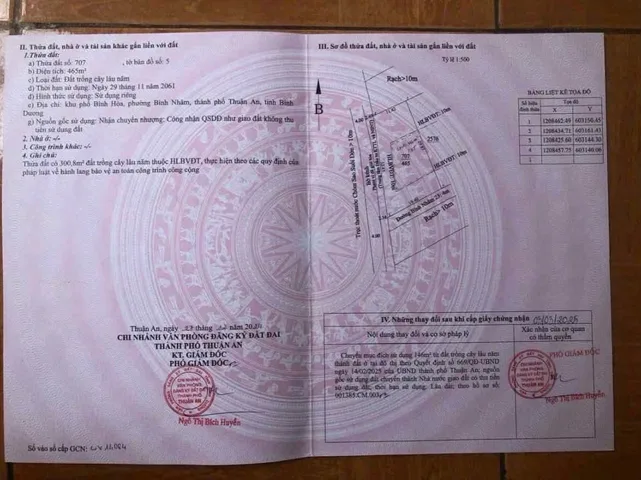 II. Thửa đất, nhà ở và tài sản khác gắn liền với đất
1. Thửa đất:
a) Thửa đất số: 707 , tờ bản đồ số: 5
b) Diện tích: 465m²
c) Loại đất: Đất trồng cây lâu năm
d) Thời hạn sử dụng: Ngày 29 tháng 11 năm 2061
đ) Hình thức sử dụng: Sử dụng riêng
e) Địa chỉ: khu phố Bình Hòa, phường Bình Nhâm, thành phố Thuận An, tỉnh Bình
Dương
g) Nguồn gốc sử dụng: Nhận chuyển nhượng; Công nhận QSDĐ như giao đất không thu
tiền sử dụng đất
2. Nhà ở: -/-
3. Công trình khác: -/-
4. Ghi chú:
Thửa đất có 300,8m² đất trồng cây lâu năm thuộc HLBVĐT, thực hiện theo các quy định của
pháp luật về hành lang bảo vệ an toàn công trình công cộng
Thuận An, ngày tháng năm
CHI NHÁNH VĂN PHÒNG ĐĂNG KÝ ĐẤT ĐAI
THÀNH PHỐ THUẬN AN
KT. GIÁM ĐỐC
PHÓ GIÁM ĐỐC
CHI NHÁNH
VĂN PHÒNG
ĐĂNG KÝ ĐẤT ĐAI
THÀNH PHỐ
THUẬN AN
Ngô Thị Bích Huyền
Số vào sổ cấp GCN:
III. Sơ đồ thửa đất, nhà ở và tài sản gắn liền với đất
Tỷ lệ 1:500
B
Rạch>10m
HLBVĐT: 10m
2578
707
465
HLBVĐT: 10m
Đường Bình Nhâm
Rạch> 10m
4.00
BẢNG LIỆT KÊ TỌA ĐỘ
Số hiệu điểm
Tọa độ
X Y
1 1208462.49 603156.45
2 1208434.71 603161.43
3 1208425.60 603144.30
4 1208457.75 603140.06
IV. Những thay đổi sau khi cấp giấy chứng nhận
Nội dung thay đổi và cơ sở pháp lý
Xác nhận của cơ quan
có thẩm quyền
Chuyển mục đích sử dụng 146m² từ đất trồng cây lâu năm
thành đất ở tại đô thị theo Quyết định số 669/QĐ-UBND
ngày 14/02/2025 của UBND thành phố Thuận An; nguồn
gốc sử dụng đất chuyển thành Nhà nước giao đất có thu tiền
sử dụng đất, thời hạn sử dụng: Lâu dài; theo hồ sơ số
001385.CM.003
PHÓ GIÁM ĐỐC
CHI NHÁNH
VĂN PHÒNG
ĐĂNG KÝ ĐẤT ĐAI
THÀNH PHỐ
THUẬN AN
Ngô Thị Bích Huyền